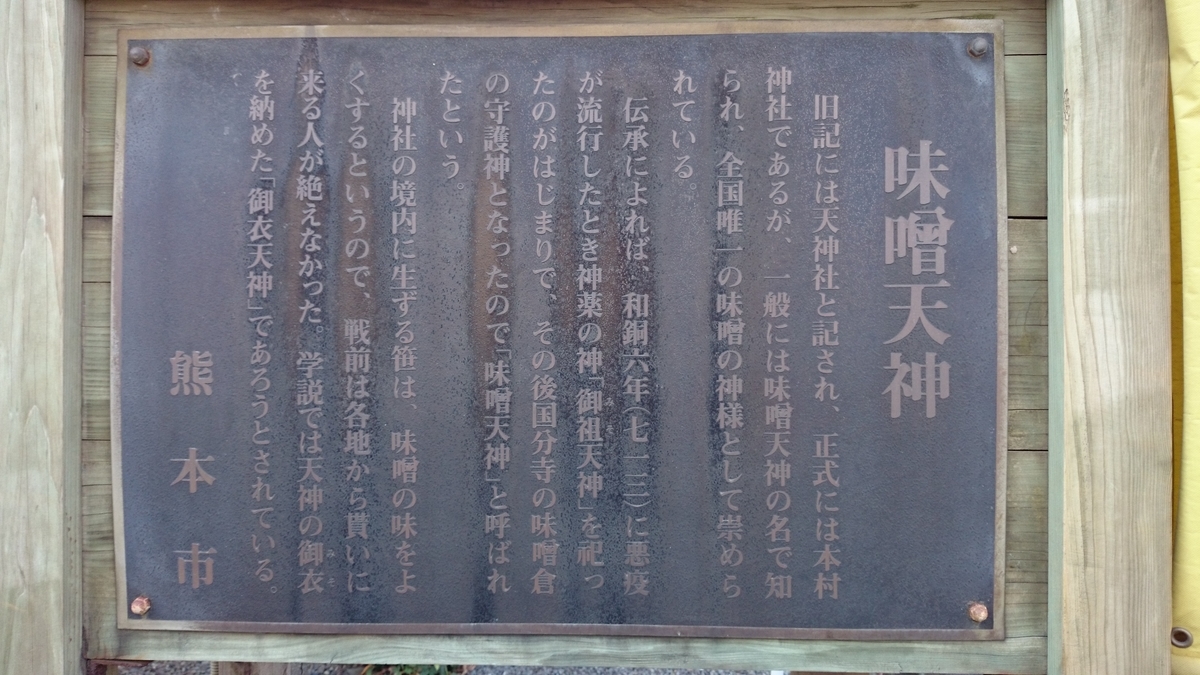 味噌天神
旧記には天神社と記され、正式には本村
神社であるが、一般には味噌天神の名で知
られ、全国唯一の味噌の神様として崇めら
れている。
伝承によれば、和銅六年(七一三)に悪疫
が流行したとき神薬の神「御祖天神」を祀っ
たのがはじまりで、その後国分寺の味噌倉
の守護神となったので「味噌天神」と呼ばれ
たという。
神社の境内に生ずる笹は、味噌の味をよ
くするというので、戦前は各地から貰いに
来る人が絶えなかった。学説では天神の御衣
を納めた「御衣天神」であろうとされている。
熊本市